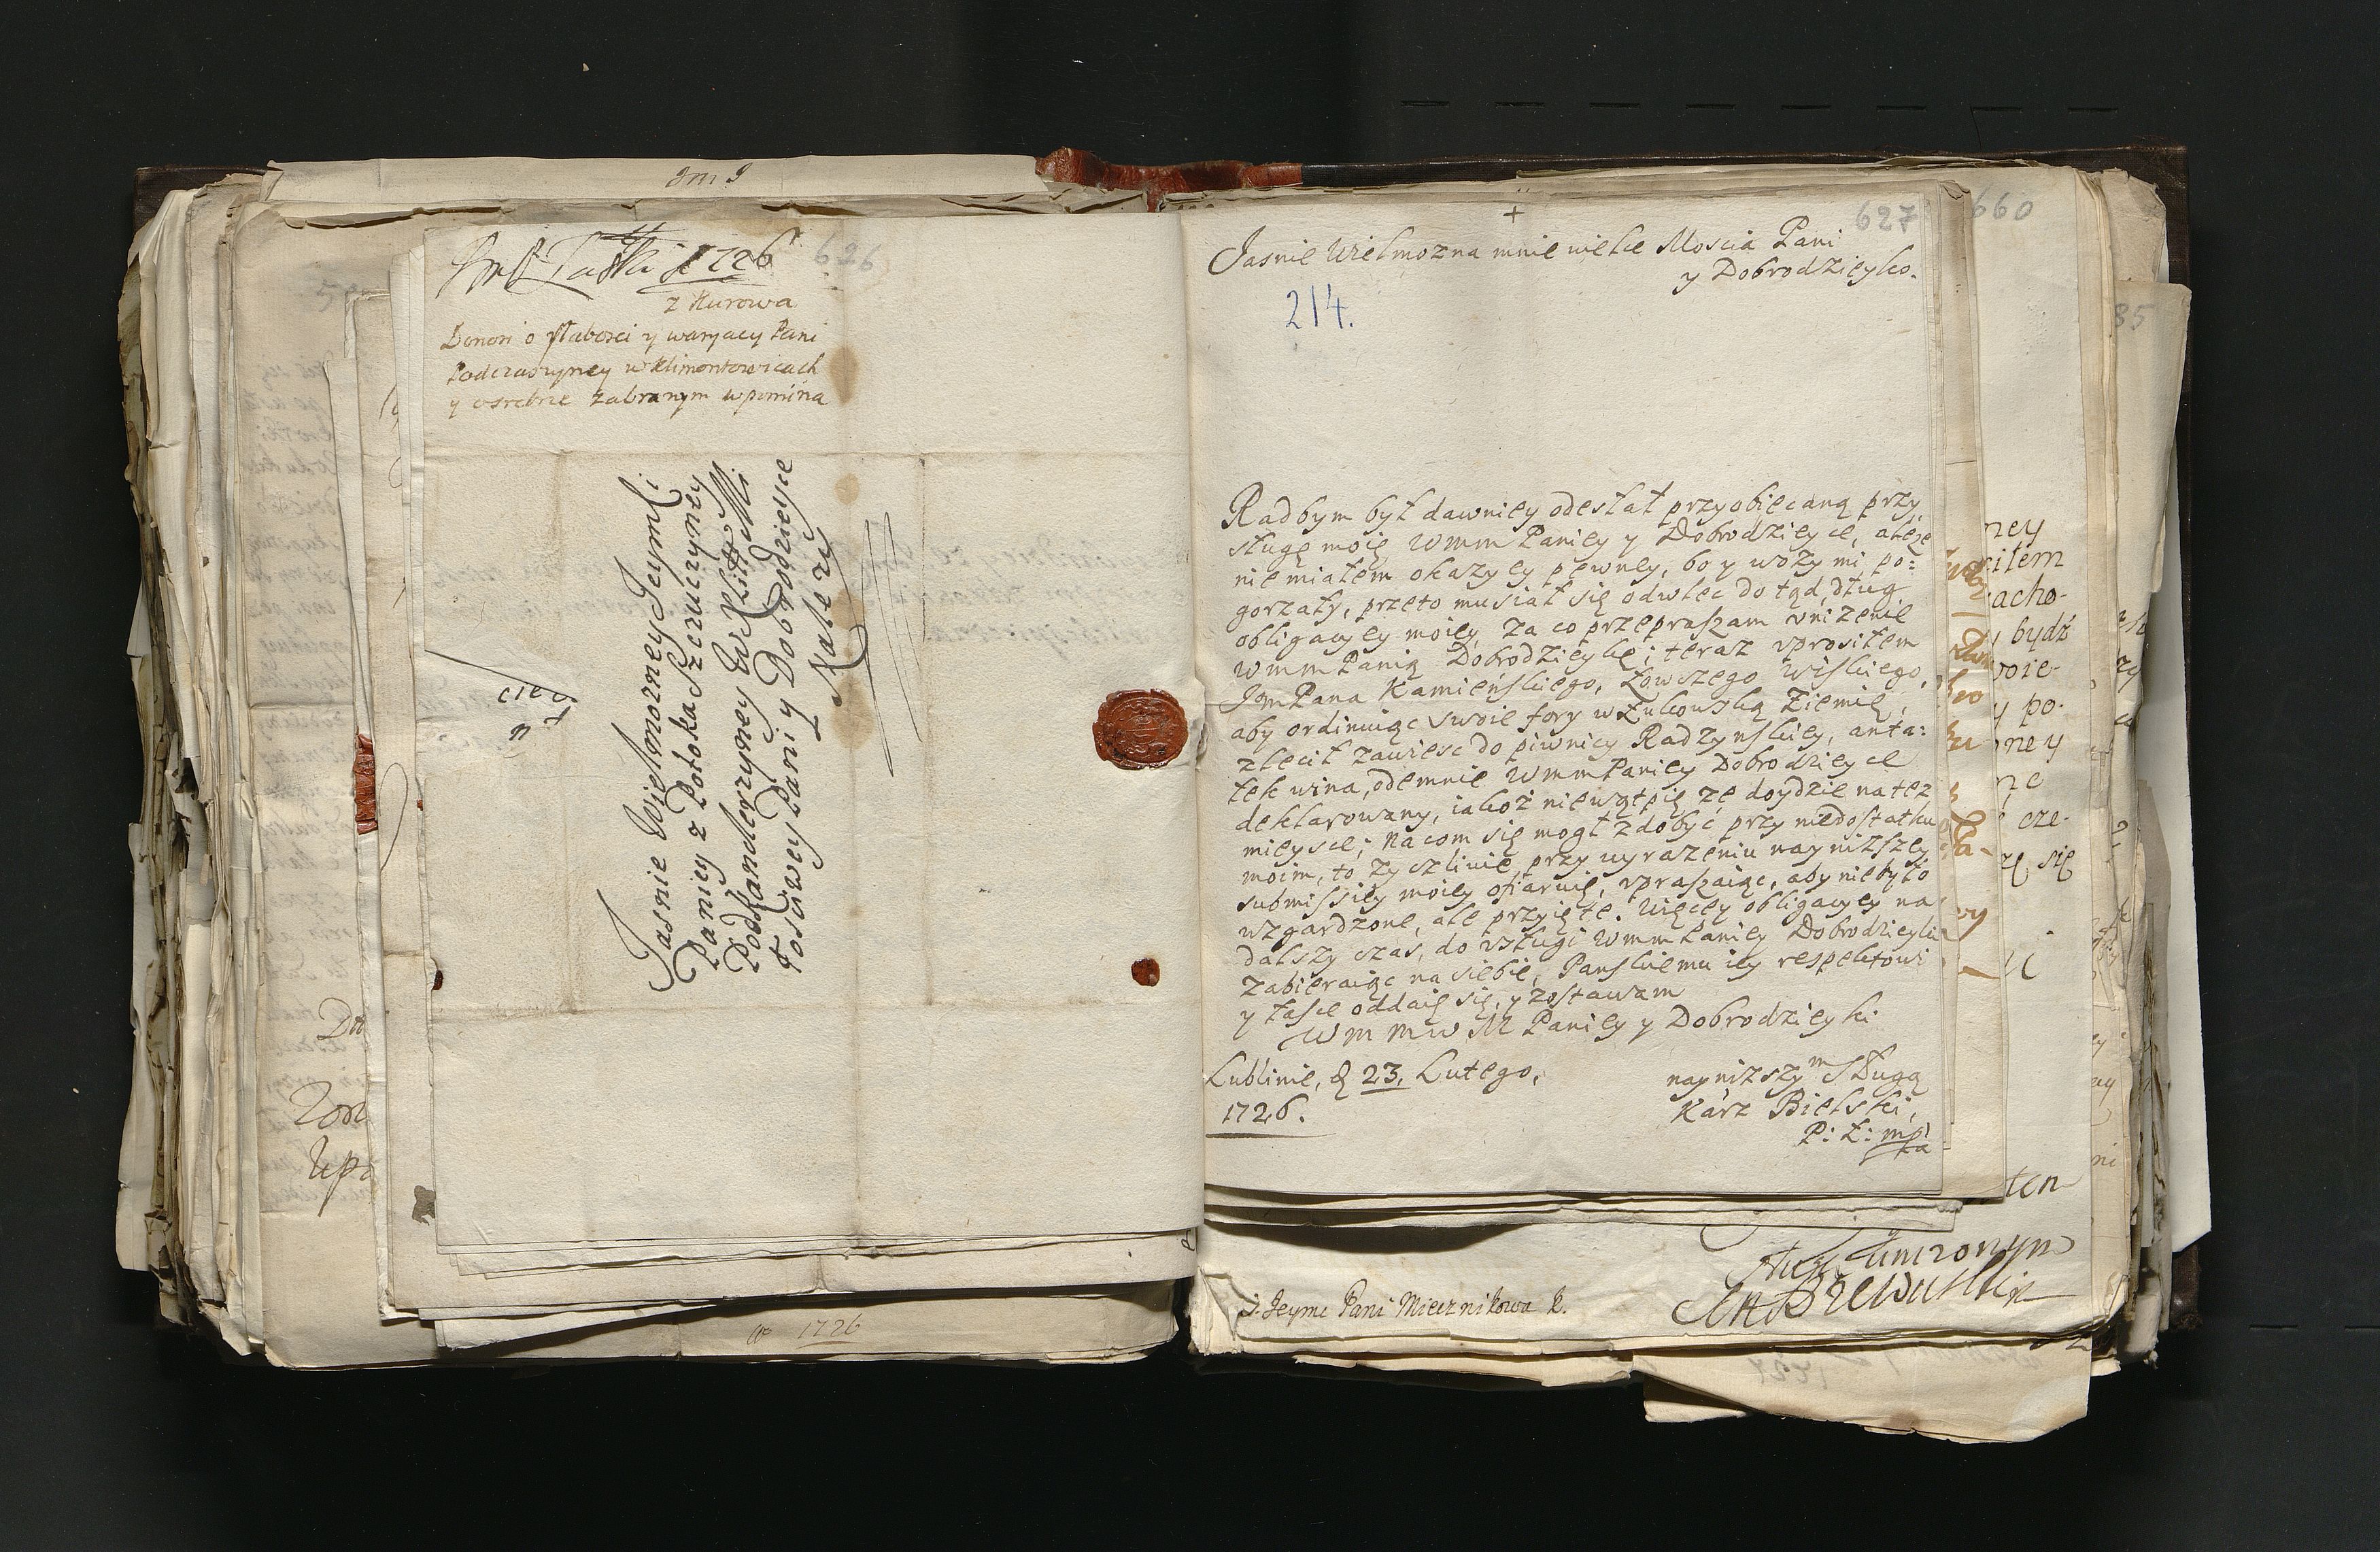 1726 626
z Kurowa
Donosi o słabosci y waryacy Pani
Podczaszyney w Klimontowicach
y osrebrze zabranym wpomina
Jasnie Wielmozney Jeymci
Paniey z Potoka Szczuczyney
Podkanclerzyney W X Litt Mi
Łosciwey Pani y Dobrodzieyce
Nalezy
627
+
Jasnie Wielmozna mnie wielce Moscia Pani
y Dobrodzieyko.
214.
Radbym był dawniey odesłał przyobiecaną przy
sługę moię WmmPaniey y Dobrodzieyce, ależe
niemiałem okazyey pewney, bo y wozy mi po:
gorzały, przeto musiał się odwlec do tąd, dług
obligacyey moiey, za co przepraszam unizenie
WmmPanią Dobrodzieykę; teraz uprosiłem
JmPana Kamieńskiego, Łowszego Wiskiego,
aby ordinuiąc swoie fory w Łukowską Ziemię,
zlecił zawiesc do piwnicy Radzynskiey, anta:
łek wina, odemnie WmmPaniey Dobrodzieyce
deklarowany, iakoż niewątpię ze doydzie na tez
mieysce; Na com się mogł zdobyć przy niedostatku
moim, to zyczliwie przy wyrazeniu nayniższey
submissiey moiey ofiaruię, upraszaiąc, aby niebyło
wzgardzone, ale przyięte. Więcey obligacyey na
dalszy czas, do usługi WmmPaniey Dobrodzieyki
zabieraiąc na siebie, Panskiemu iey respektowi
y łasce oddaię się, y zostawam
Wm mw M Paniey y Dobrodzieyki
Lublinie, d 23. Lutego,
1726.
nayniższym Sługą
Kárz Bielski,
P: Ł: mp
660
J. Jeymc Pani Miecznikowa K.
1726